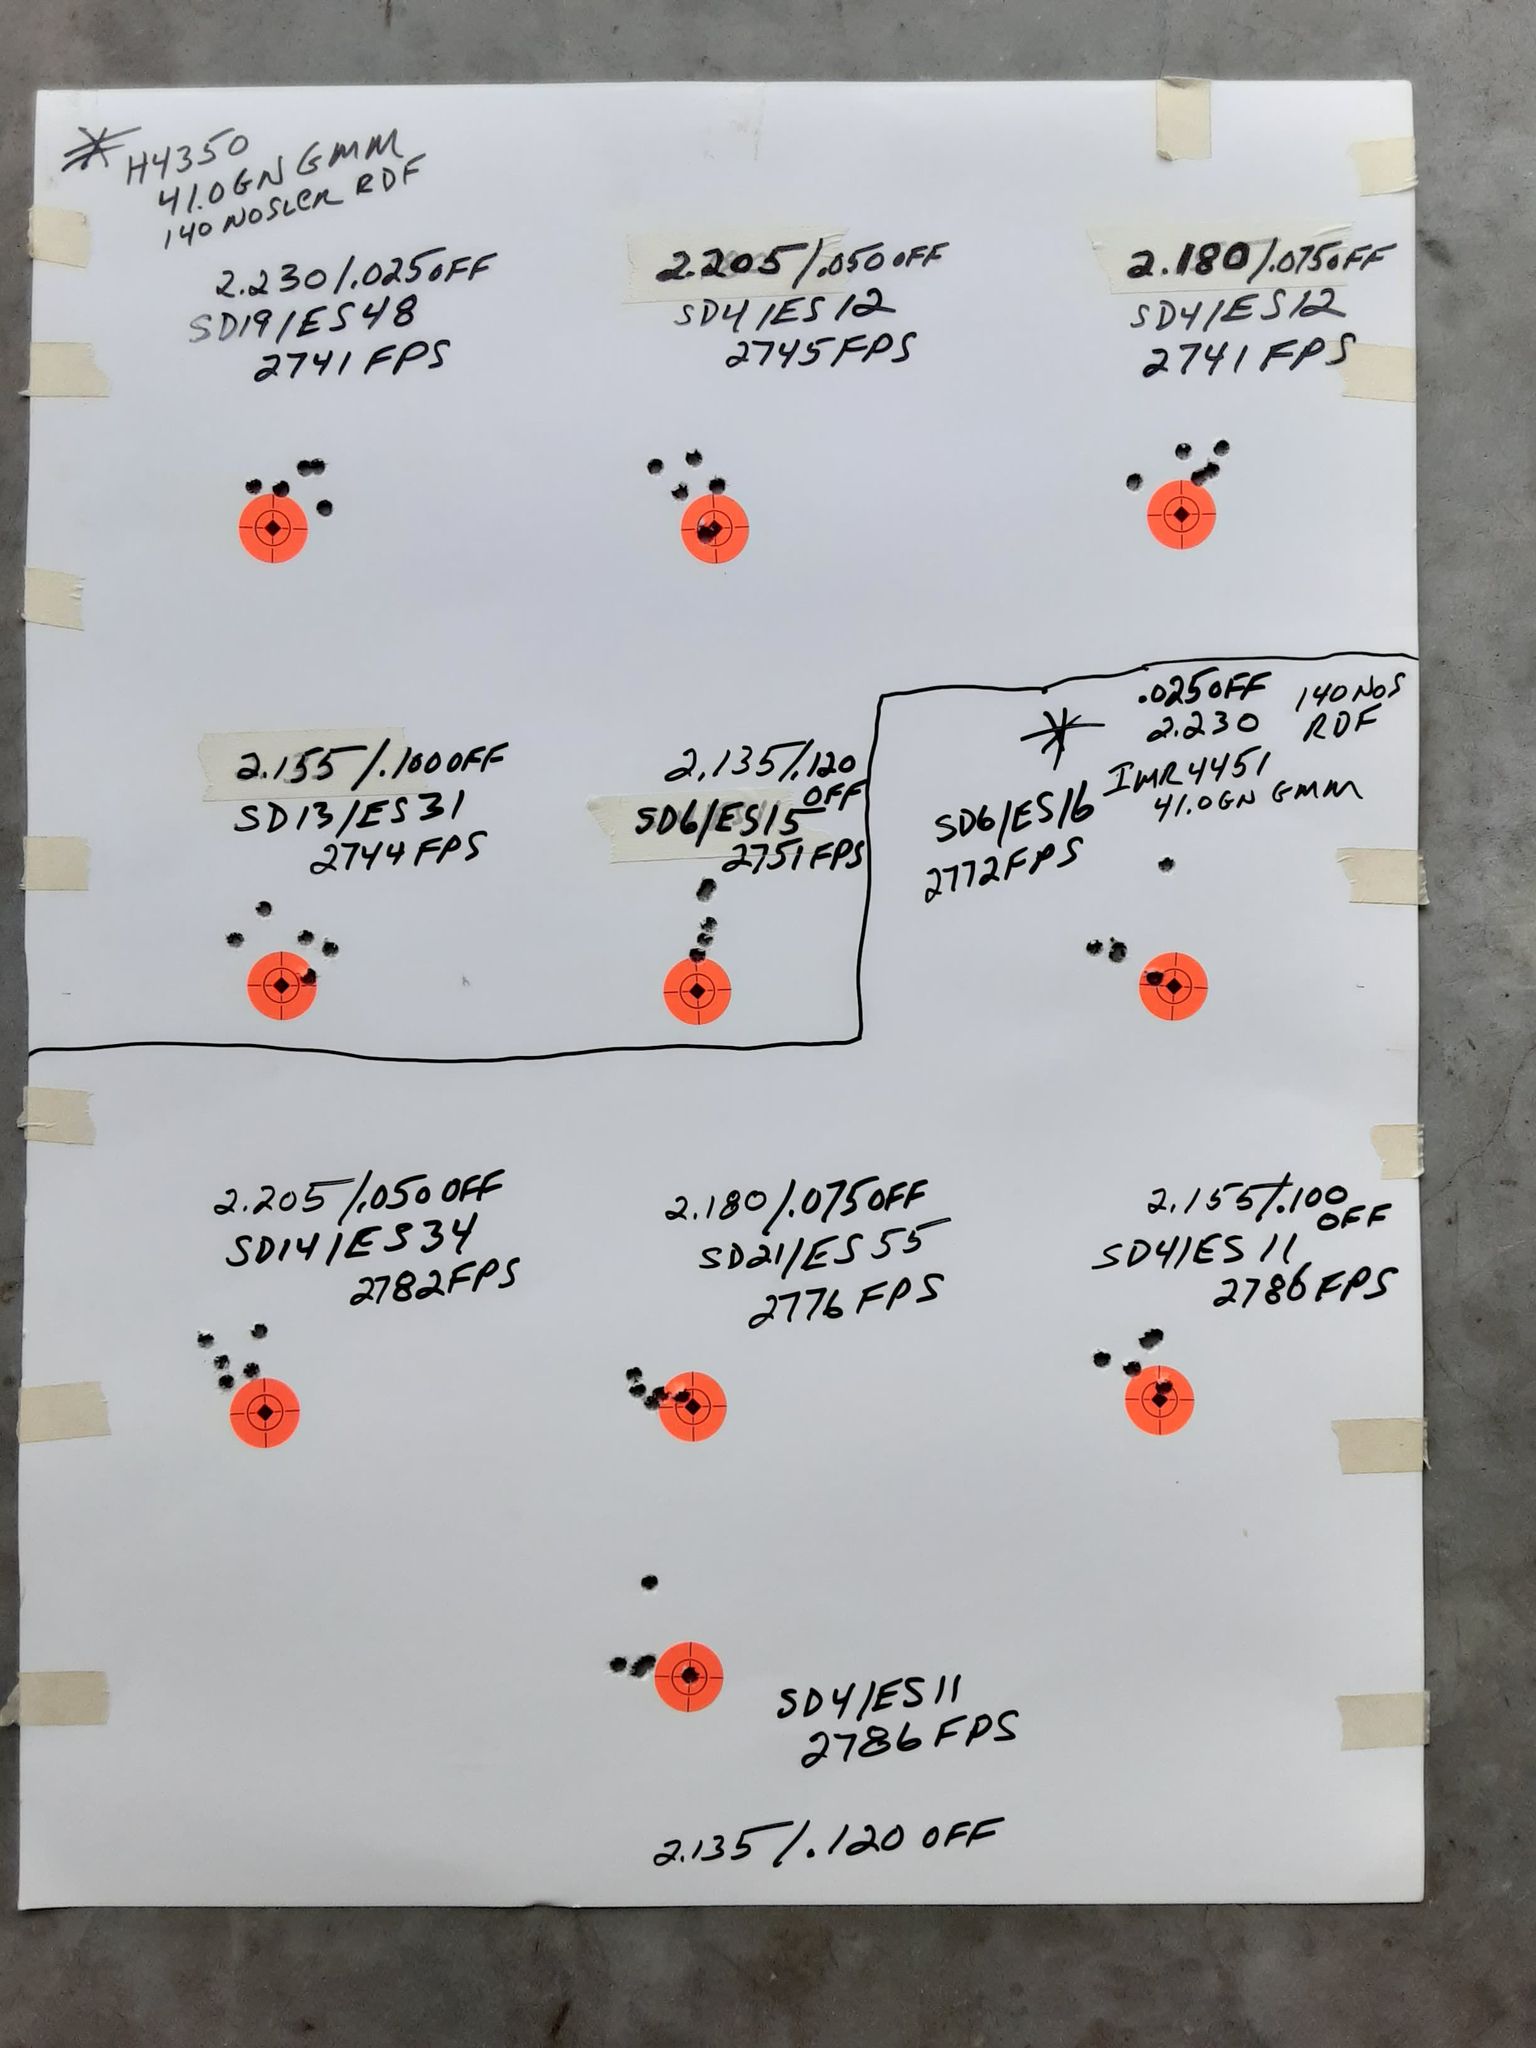 H4350
41.0GN GMM
140 NOSLER RDF
2.230/.025OFF
SD19/ES48
2741 FPS
2.205/.050OFF
SD4/ES12
2745FPS
2.180/.075OFF
SD4/ES12
2741 FPS
2.155/.100OFF
SD13/ES31
2744FPS
2.135/.120
OFF
SD6/ES15
2751FPS
.025OFF
2.230
140NOS
RDF
IMR4451
41.0GN GMM
SD6/ES16
2772FPS
2.205/.050OFF
SD14/ES34
2782FPS
2.180/.075OFF
SD21/ES55
2776 FPS
2.155/.100
OFF
SD4/ES11
2786FPS
SD4/ES11
2786FPS
2.135/.120 OFF